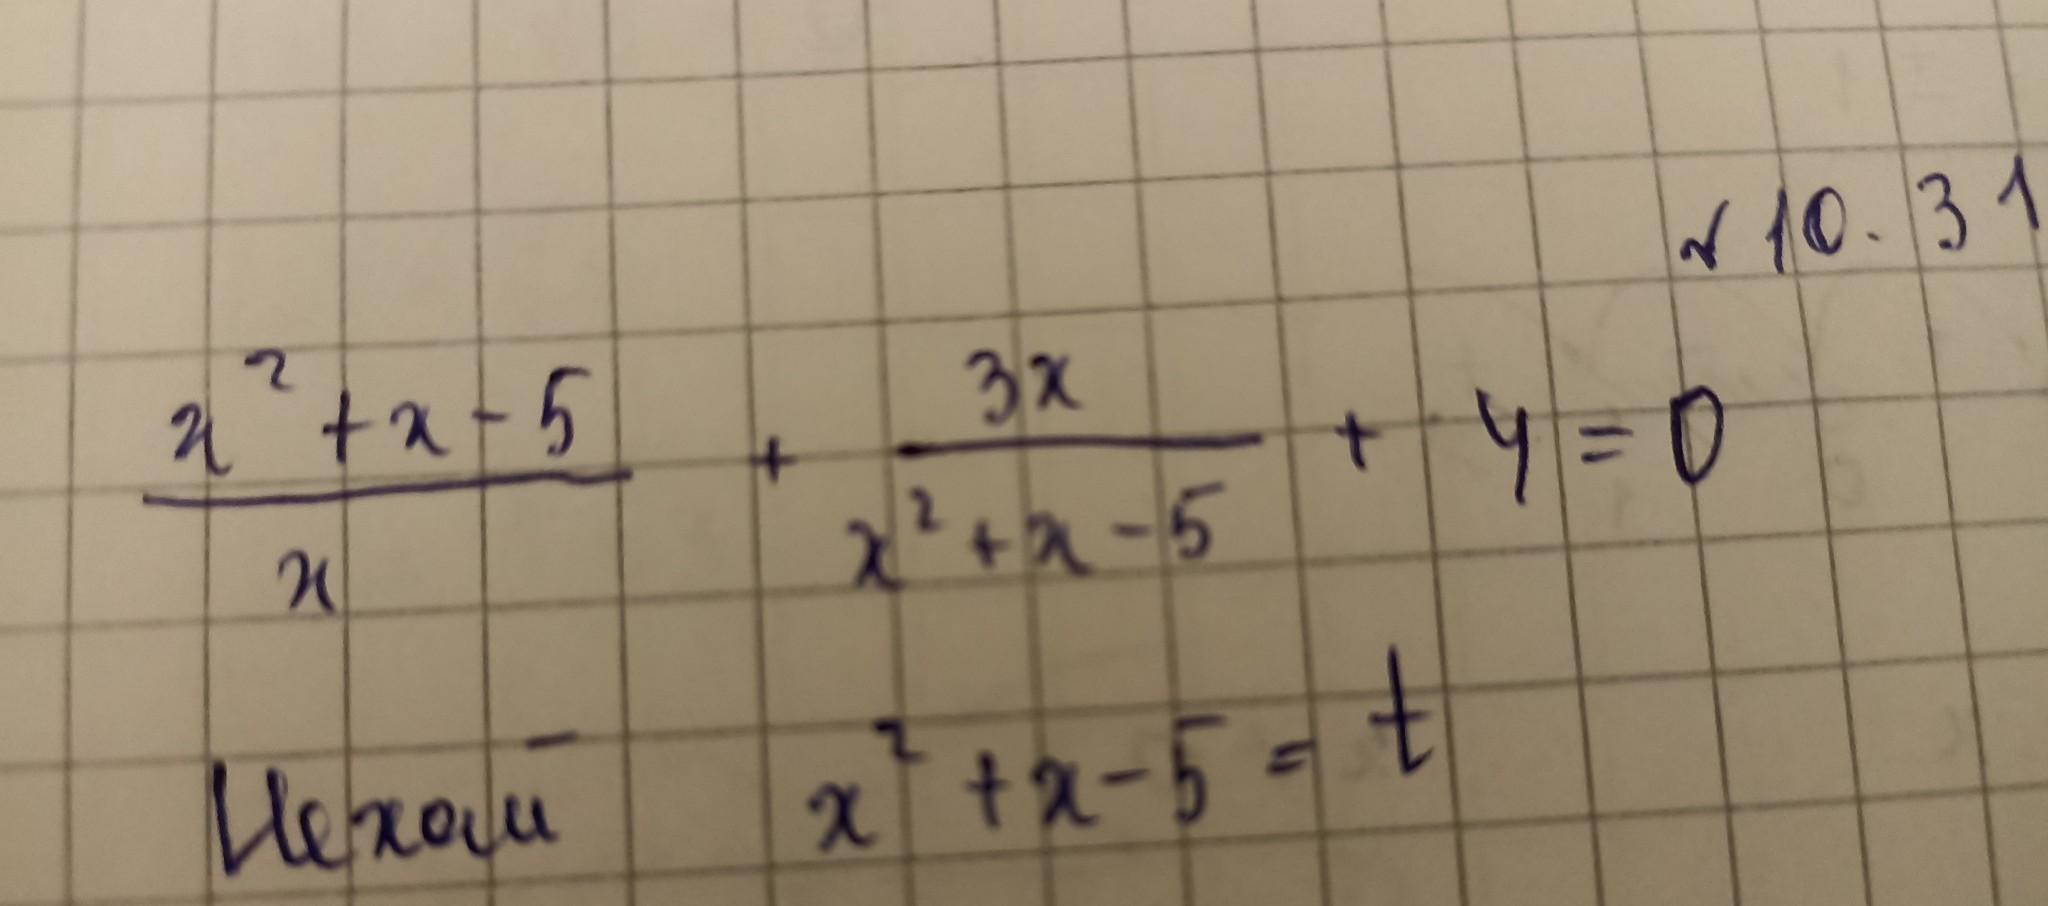 № 10.31
(x² + x - 5)/x + 3x/(x² + x - 5) + 4 = 0
Нехай x² + x - 5 = t